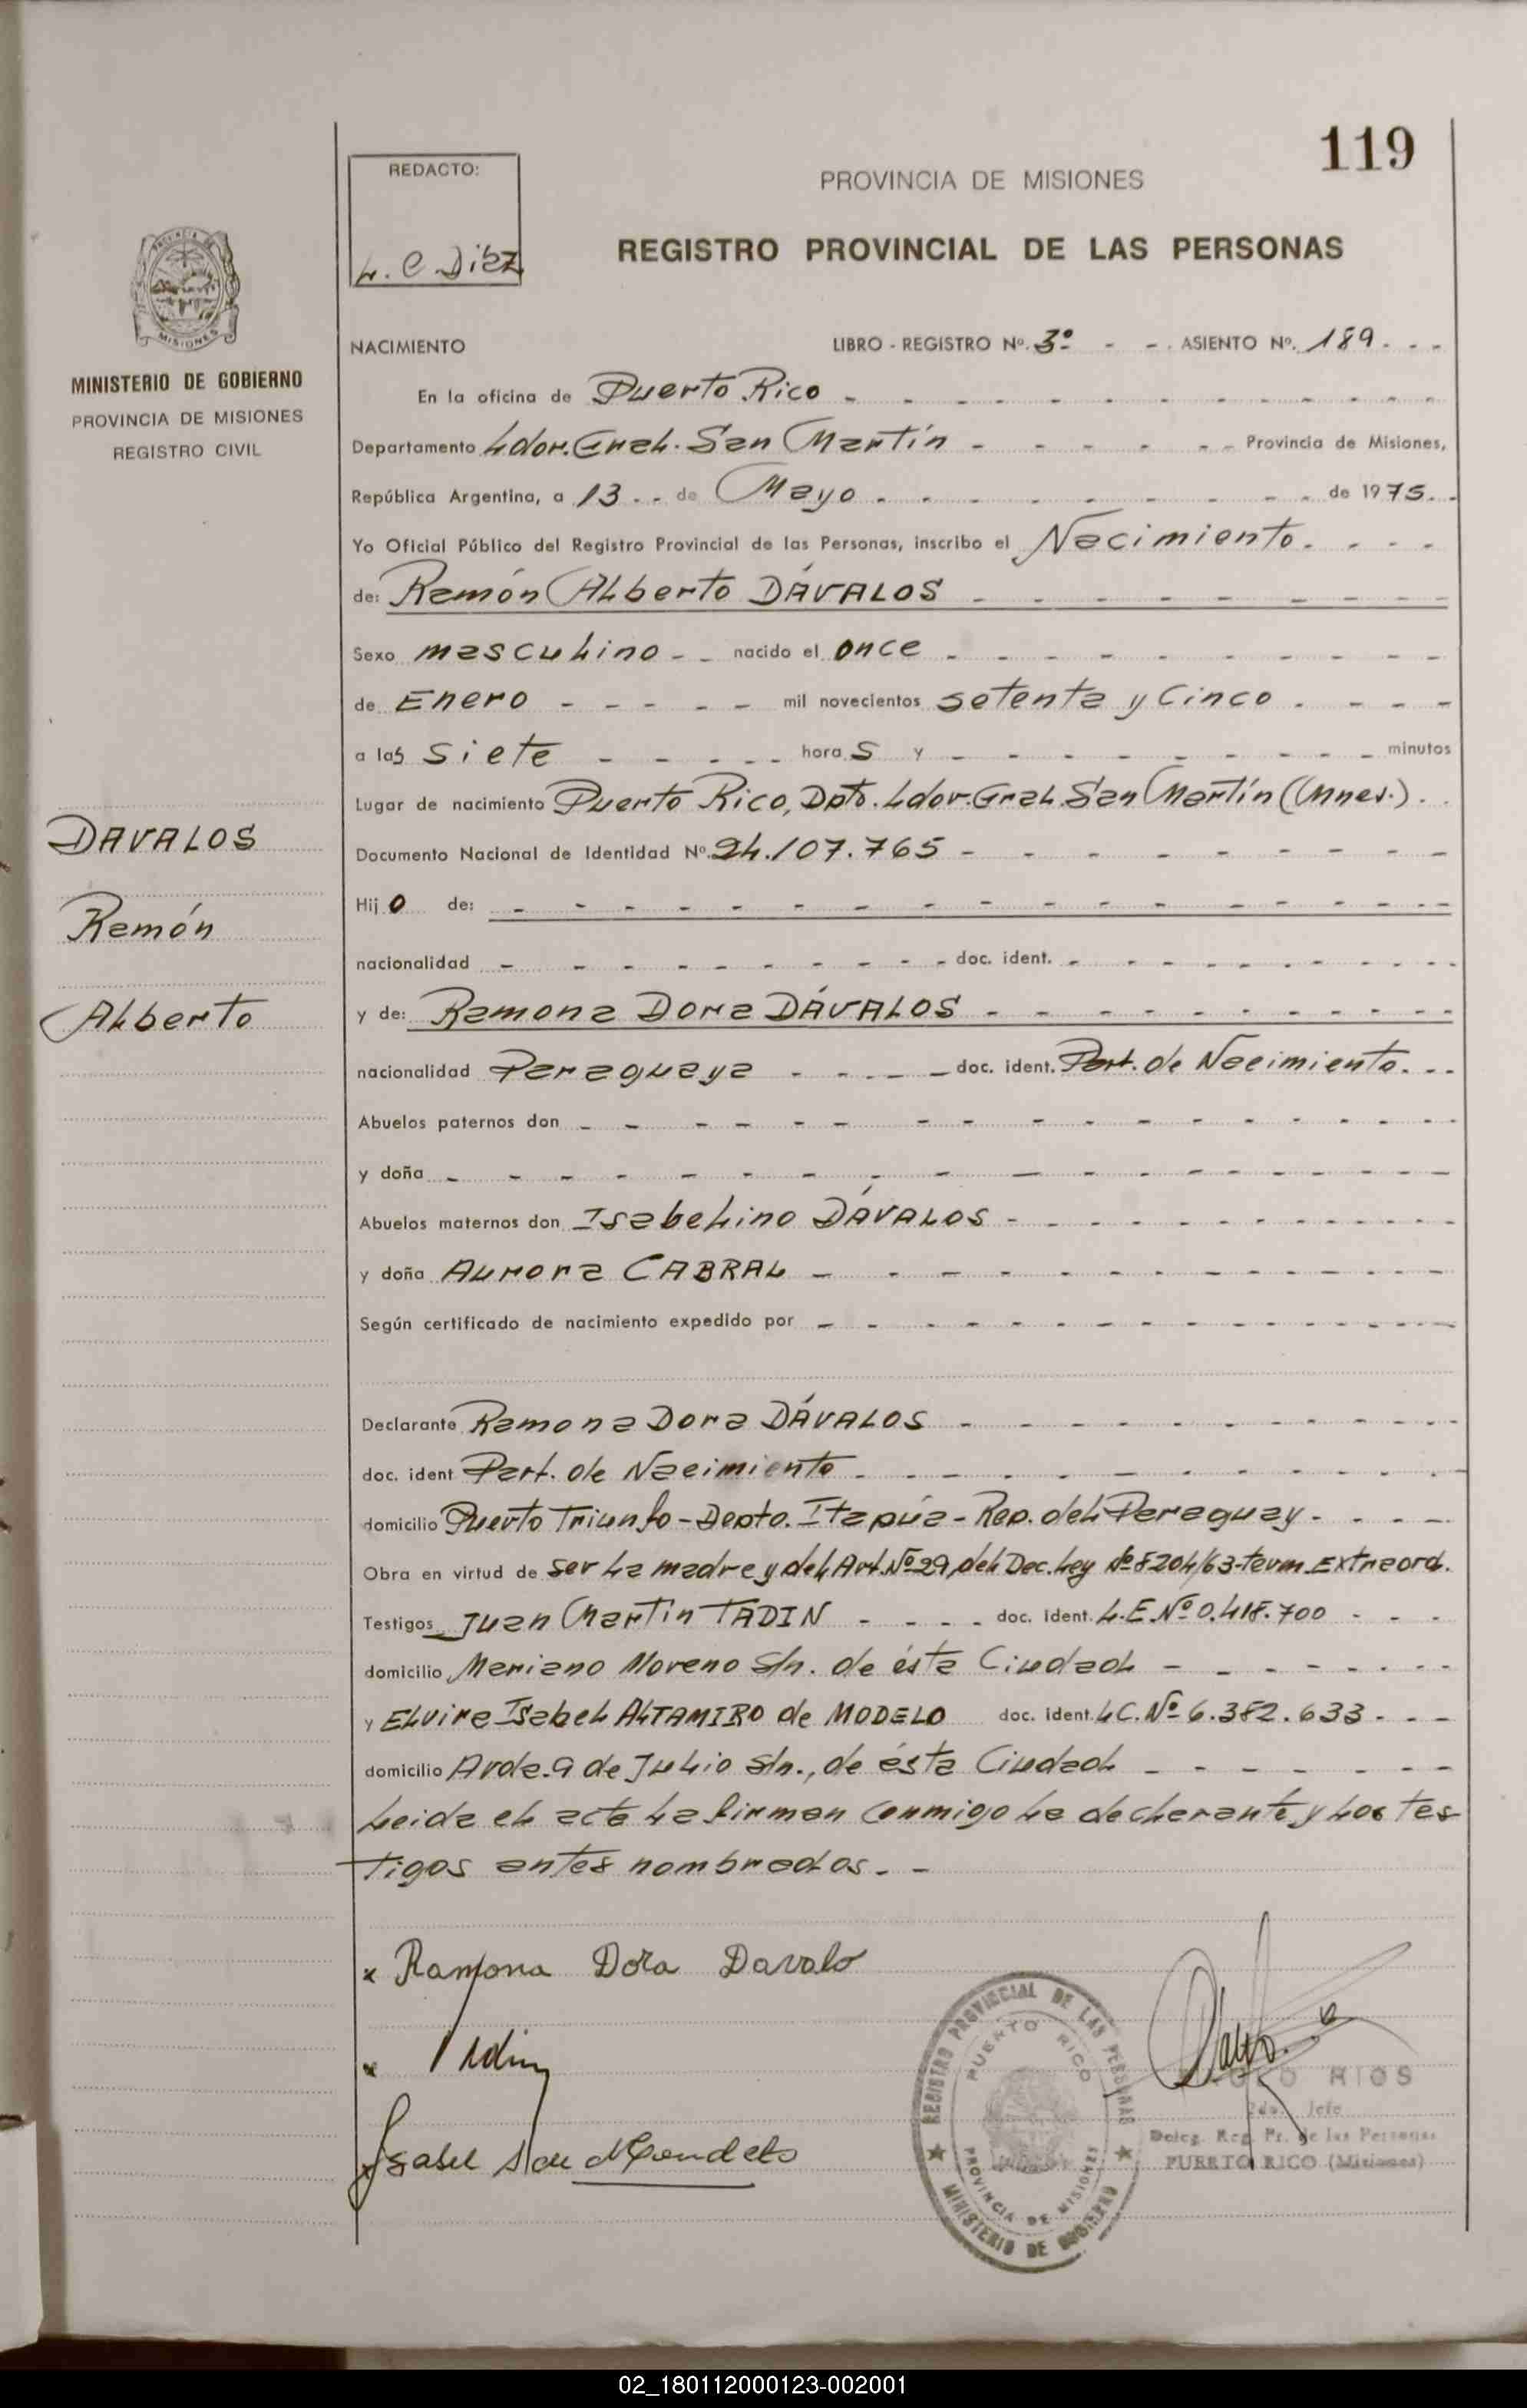 119
REDACTO:
L. C. Diez
PROVINCIA DE MISIONES
REGISTRO PROVINCIAL DE LAS PERSONAS
PROVINCIA DE
MISIONES
MINISTERIO DE GOBIERNO
PROVINCIA DE MISIONES
REGISTRO CIVIL
NACIMIENTO LIBRO - REGISTRO Nº. 3º - - . ASIENTO Nº. 189 . - -
En la oficina de Puerto Rico
Departamento Ldor. Gral. San Martín Provincia de Misiones,
República Argentina, a 13 - - de Mayo de 1975.
Yo Oficial Público del Registro Provincial de las Personas, inscribo el Nacimiento
de: Ramón Alberto DÁVALOS
Sexo masculino - - nacido el once
de Enero mil novecientos setenta y Cinco
a las siete horas y minutos
Lugar de nacimiento Puerto Rico, Dpto. Ldor. Gral. San Martín (Mnes.)
DAVALOS
Documento Nacional de Identidad Nº. 24.107.765
Hijo de:
Ramón
nacionalidad doc. ident.
y de: Ramona Dora DÁVALOS
Alberto
nacionalidad Paraguaya doc. ident. Part. de Nacimiento
Abuelos paternos don
y doña
Abuelos maternos don Isabelino DÁVALOS
y doña Aurora CABRAL
Según certificado de nacimiento expedido por
Declarante Ramona Dora DÁVALOS
doc. ident Part. de Nacimiento
domicilio Puerto Triunfo - Depto. Itapúa - Rep. del Paraguay
Obra en virtud de ser la madre y del Art. Nº 29, del Dec. Ley Nº 8204/63-term. Extraord.
Testigos Juan Martín TADIN doc. ident. L.E. Nº 0.418.700
domicilio Mariano Moreno s/n. de ésta Ciudad
y Elvira Isabel ALTAMIRO de MODELO doc. ident. L.C. Nº 6.382.633
domicilio Avda. 9 de Julio s/n., de ésta Ciudad
Leida el acta la firman conmigo la declarante y los tes
tigos antes nombrados. -
x Ramona Dora Davalo
x
REGISTRO PROVINCIAL DE LAS PERSONAS
PUERTO RICO
PROVINCIA DE MISIONES
MINISTERIO DE GOBIERNO
RIOS
2do. Jefe
Deleg. Reg. Pr. de las Personas
PUERTO RICO (Misiones)
Isabel
02_180112000123-002001